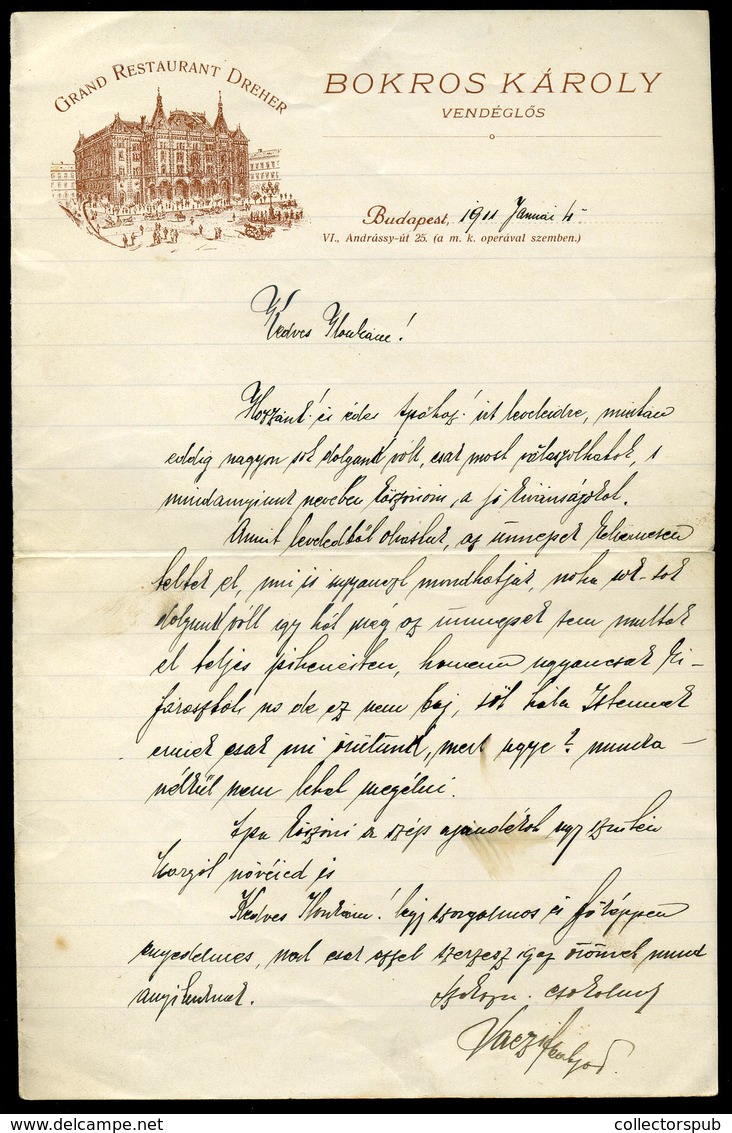 GRAND RESTAURANT DREHER
BOKROS KÁROLY
VENDÉGLŐS
Budapest, 1911 Január 4.
VI., Andrássy-út 25. (a m. k. operával szemben.)
Kedves Ilonkám!
Hozzánk! és édes Apához! írt leveleidre, miután
eddig nagyon sok dolgunk volt, csak most válaszolhatok, s
mindannyiunk nevében köszönöm a jó kívánságokat.
Amint leveledből olvastuk, az ünnepek kellemesen
teltek el, mi is ugyanezt mondhatjuk, noha sok-sok
dolgunk volt így hát még az ünnepek sem multak
el teljes pihenésben, hanem ugyancsak ki-
fárasztók, no de ez nem baj, sőt hála Istennek
ennek csak mi örülünk, mert ugye? munka-
nélkül nem lehet megélni.
Apa köszöni a szép ajándékot úgyszintén
Margit nővéred is
Kedves Ilonkám! légy szorgalmos és főképpen
engedelmes, mert csak azzal szerzesz igaz örömet mind
anyiunknak.
csokolunk
collectorspub